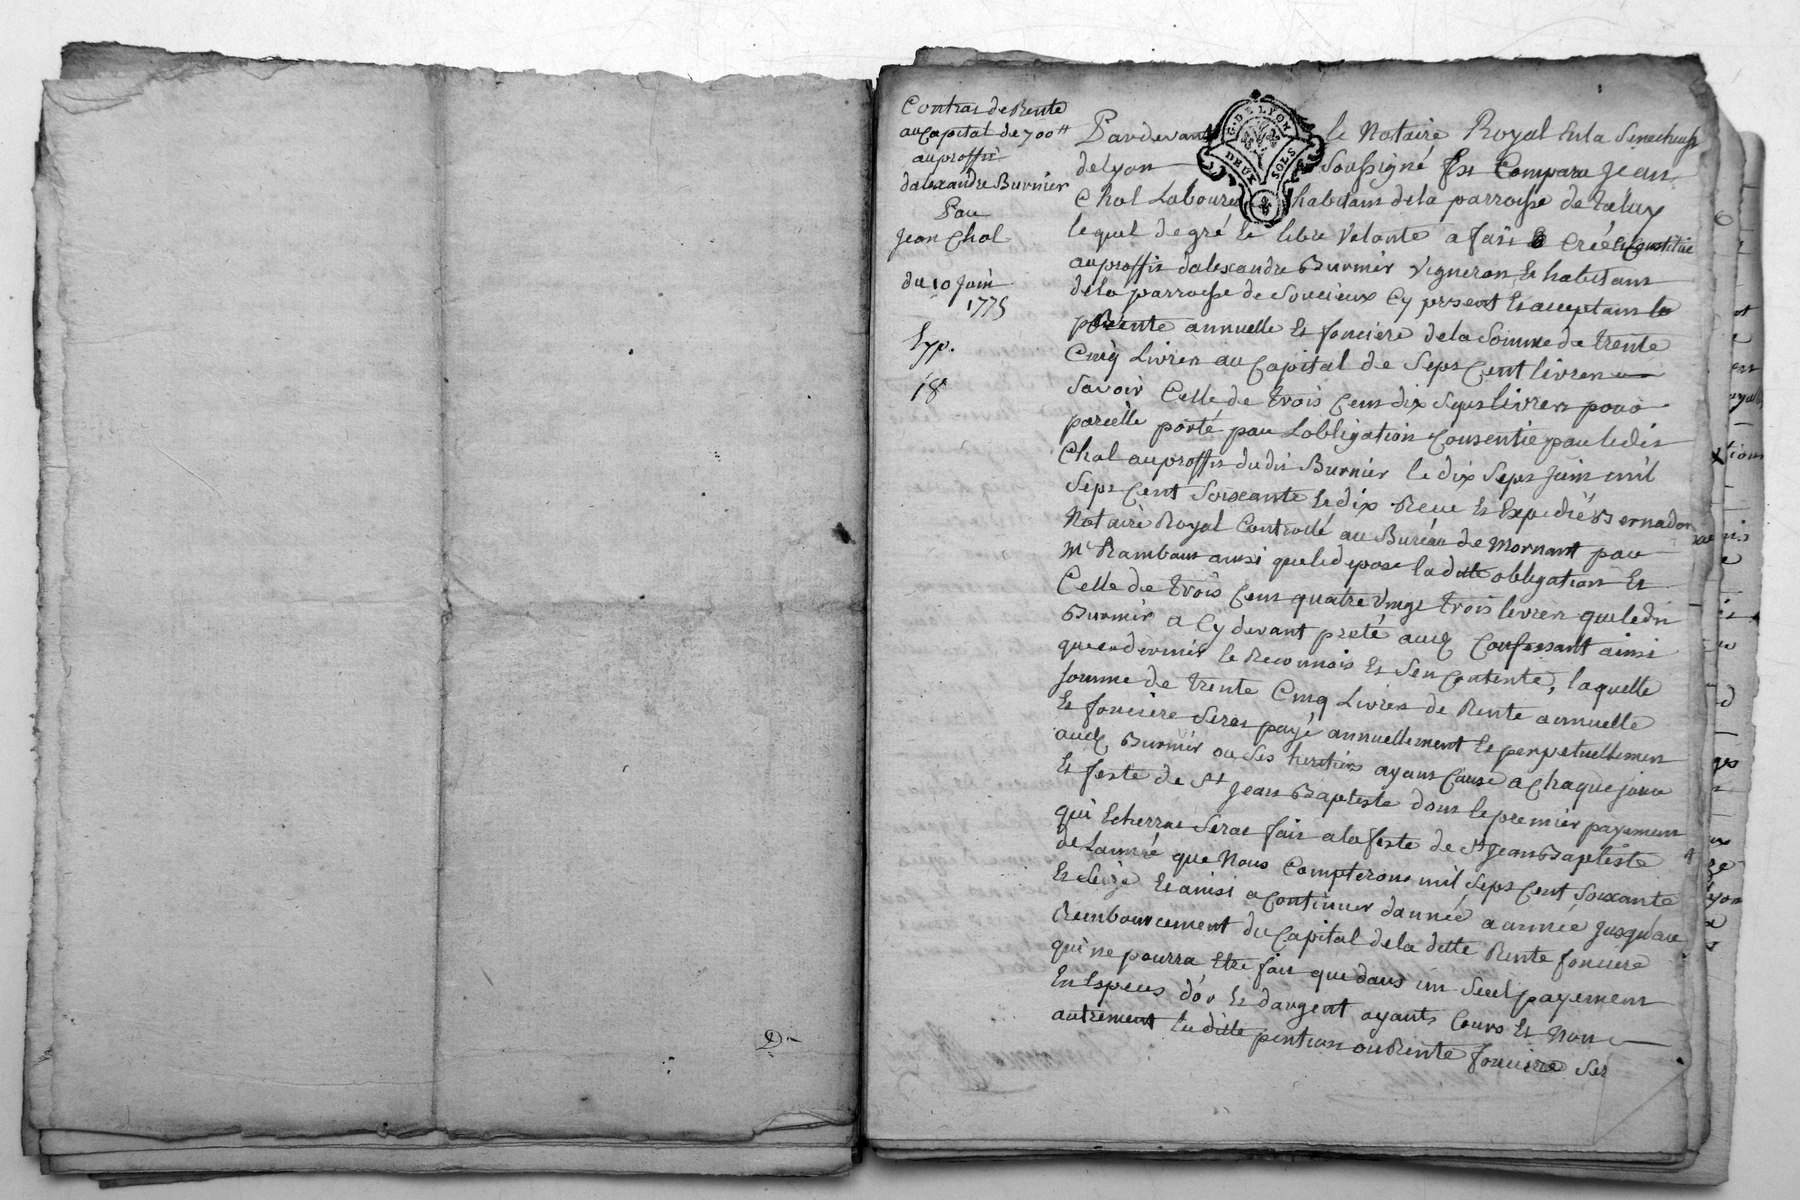 Contrat de Rente
au Capital de 700ᵗᵗ
au proffit
dalexandre Burnier
Par
Jean Chol
du 10 Juin
1775
Exp.
18
G. DE LYON
DEUX SOLS
Pardevant le Notaire Royal En la Senechaussé
de Lyon Soussigné fut Comparu Jean
Chol Laboureur habitant dela parroisse de Taluy
lequel de gré Et libre Volonté a fait Créé Et Constitué
au proffit dalexandre Burnier Vigneron Et habitant
dela parroisse de Soucieux Cy present Et acceptant la
Rente annuelle Et fonciere dela Somme de trente
Cinq Livres au Capital de Sept Cent livres
Savoir Celle de trois Cent dix Sept livres pour
pareille porté par Lobligation Consentie par ledit
Chol au proffit dudit Burnier le dix Sept Juin mil
Sept Cent Soixante Et dix Recue Et Expedié Bernadon
Notaire Royal Controllé au Bureau de Mornant par
Mʳ Rambaut ainsi quele depose ladite obligation Et
Celle de trois Cent quatre Vingt trois livres queledit
Burnier a Cy devant preté aud. Confessant ainsi
que ce dernier le Reconnois Et Sen Contente, laquelle
Somme de trente Cinq Livres de Rente annuelle
Et fonciere Sera payé annuellement Et perpetuellement
aud. Burnier ou Ses heritiers ayant Cause a Chaque jour
Et feste de Sᵗ Jean Baptiste dont le premier payement
qui Echerra Sera fait a la feste de Sᵗ Jean Baptiste
de Lanné que Nous Compterons mil Sept Cent Soixante
Et Seize Et ainsi a Continuer dannée a année Jusqu'au
Rembourcement du Capital dela ditte Rente fonciere
qui ne pourra Etre fait que dans un Seul payement
En Especes d'or Et dargent ayants Cours Et Non
autrement la ditte pention ou Rente fonciere Ser
D